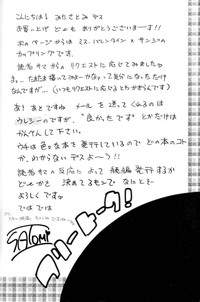 こんにちは! みなさとみ デス
お買い上げ どーも ありがとうございまーす!!
ホムページからは ミス.バレンタイン × サンジの
カップリングです。
読者サマ からの リクエストに 応じてみましたよ
なんですが… (いつもリクエストに応じるとかぎらんです)
あ! あとですね メールを 送ってくれるのは
ウレシーのですが "良かったです" とかだけは
かんべんして下さい。
ウチは 色々な本を 発行しているので どの本のコト
か、わからないデスよー!!
読者サマの反応に よって 続編 発行するか
どーかを 決めてるモンで なにとぞ
よろしくです。
では では
SATOMI
フリートーク!